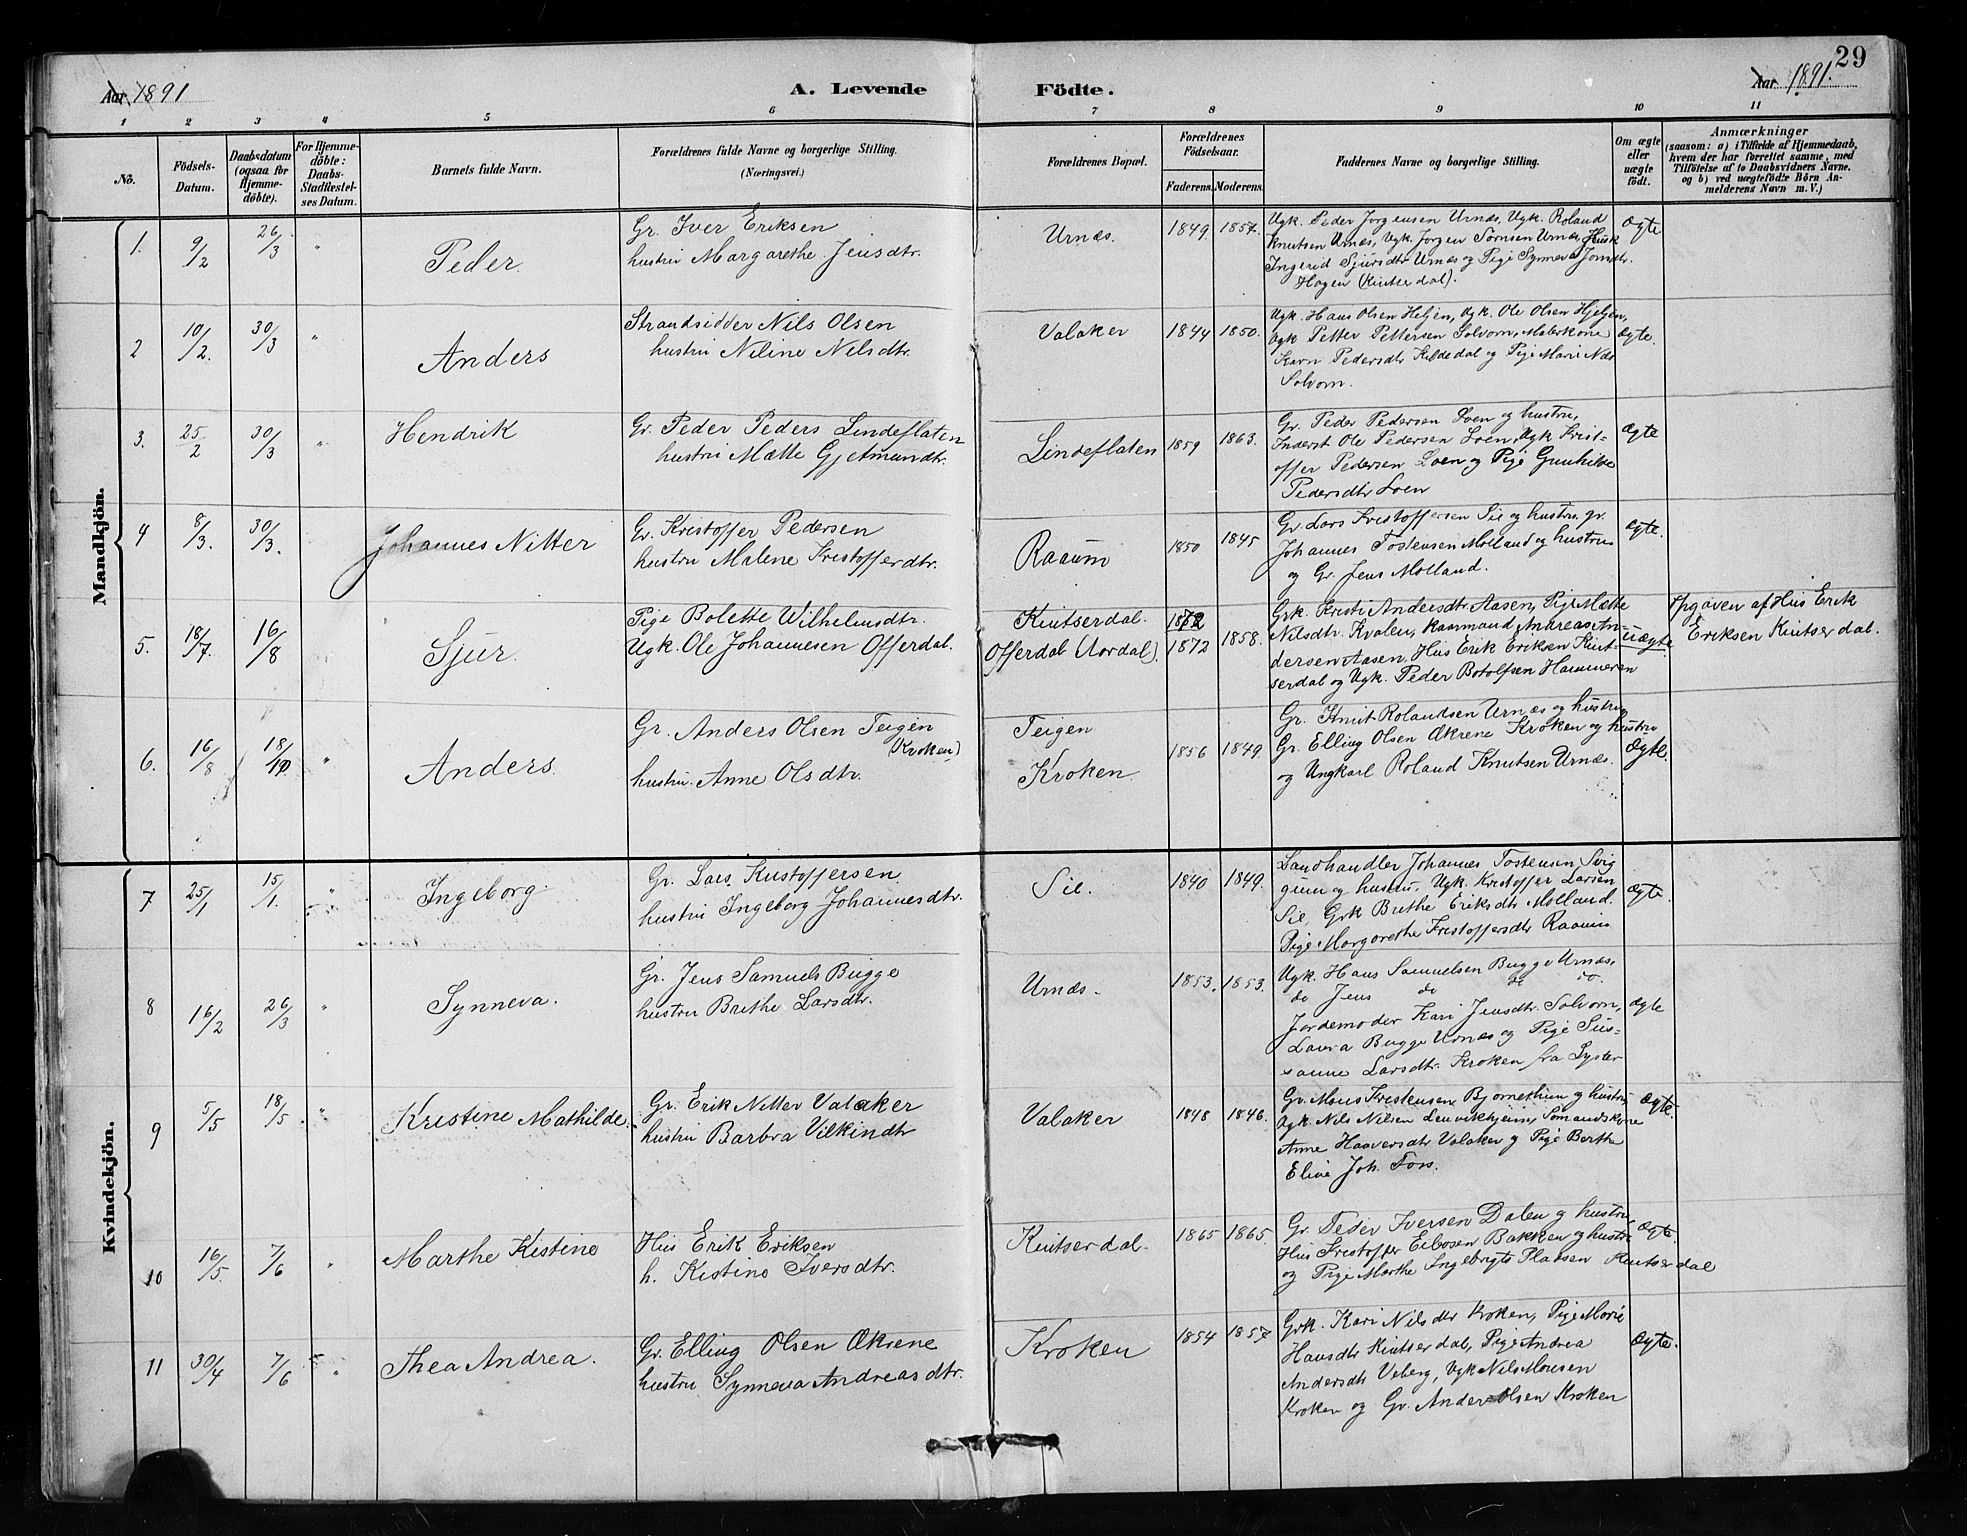 Aar 1891
A. Levende Födte.
29
Aar 1891.
1 2 3 4 5 6 7 8 9 10 11
No.
Födsels-Datum.
Daabsdatum (ogsaa for Hjemme-döbte).
For Hjemme-döbte: Daabs-Stadfæstel-ses Datum.
Barnets fulde Navn.
Forældrenes fulde Navne og borgerlige Stilling. (Næringsvei.)
Forældrenes Bopæl.
Forældrenes Födselsaar.
Faderens. Moderens.
Faddernes Navne og borgerlige Stilling.
Om ægte eller uægte födt.
Anmærkninger
(saasom: a) i Tilfælde af Hjemmedaab,
hvem der har forrettet samme, med
Tilföielse af to Daabsvidners Navne,
og b) ved uægtefödte Börn An-
melderens Navn m. V.)
Mandkjön.
1. 9/2 26/3 " Peder.
Gr. Iver Eriksen
hustru Margarethe Jensdtr.
Urnæs. 1849. 1857.
Ugk. Peder Jorgensen Urnæs, Ugk. Roland
Knutsen Urnæs, Ugk. Jorgen Sornsen Urnæs, Husk
Ingerid Sjursdtr Urnæs og Pige Synneva Tjomdtr.
Hagen (Kintserdal).
Ægte
2 10/2. 30/3 " Anders
Strandsidder Nils Olsen
hustru Niline Nilsdtr.
Valaker 1844 1850.
Ugk. Hans Olsen Heltjen, Ugk. Ole Olsen Hjeltjen,
Ugk Petter Pettersen Solvorn, Malerkone
Karn Pedersdtr Kildedal og Pige Marie Nils
Solvorn.
Ægte.
3. 25/2 30/3 " Hendrik
Gr. Peder Peders Lindeflaten
hustru Mætte Gjetmundtr.
Lindeflaten 1859 1863.
Gr. Peder Pedersen Loen og hustru,
Inderst Ole Pedersen Loen, Ugk Krist-
offer Pedersen Loen og Pige Gunhilde
Pedersdtr Loen
Ægte
4 8/3. 30/3. Johannes Nitter
Gr. Kristoffer Pedersen
hustru Malene Kristofferdtr.
Raaum 1850 1845
Gr. Lars Kristoffersen Sie og hustru, gr.
Johannes Tostensen Molland og hustru
og Gr. Jens Molland.
Ægte.
5. 18/7. 16/8 Sjur.
Pige Bolette Wilhelmsdtr.
Ugk. Ole Johannesen Offerdal.
Kintserdal.
Offerdal (Aardal). 1872 1858.
Grk. Kristi Andersdtr. Aasen, Pige Mætte
Nilsdtr. Kvalen, Kaarmand Andreas An-
dersen Aasen, Hus Erik Eriksen Kint-
serdal og Ugk. Peder Botolfsen Hammeren
uægte
Opgaven af Hus Erik
Eriksen Kintserdal.
6. 16/8 18/10 " Anders.
Gr. Anders Olsen Teigen
(Kroken)
hustru. Anne Olsdtr.
Teigen
Kroken. 1856 1849.
Gr. Knut Rolandsen Urnæs og hustru
Gr. Elling Olsen Ækrene Kroken og hustru
og Ungkarl Roland Knutsen Urnæs.
Ægte.
Kvindekjön.
7 25/1 15/1. " Ingeborg.
Gr. Lars Kristoffersen
hustru Ingeborg Johannesdtr.
Sie. 1840 1849.
Landhandler Johannes Tostensen Svig
gum og hustru, Ugk. Kristoffer Larsen
Sie, Grk Brithe Eriksdtr Molland.
Pige Margarethe Kristoffersdtr Raaum
Ægte.
8 16/2 26/3 " Synneva.
Gr. Jens Samuels Bugge
hustru Brithe Larsdtr.
Urnæs. 1853. 1853.
Ugk. Hans Samuelsen Bugge Urnæs,
do Jens do do do.
Jordemoder Kari Jensdtr. Solvorn,
Laura Bugge Urnæs og Pige Sus-
sanne Larsdtr. Kroken fra Lyster
Ægte
9 5/5 18/5 " Kristine Mathilde.
Gr. Erik Nitter Valaker
hustru Barbra Vilkindtr
Valaker 1848 1846.
Gr. Mons Kristensen Bjornethun og hustru
Ugk. Nils Nilsen Lenvikhjeim, Somandskone
Anne Haaversdtr Valaker og Pige Berthe
Eline Joh. Tors.
Ægte.
10 16/5 7/6 " Marthe Kistine
Hus Erik Eriksen
h. Kistine Iversdtr.
Kintserdal. 1865 1865.
Gr. Peder Iversen Dalen og hustru,
Hus Kristoffer Eilosen Bakken og hustru
og Pige Marthe Ingebrigts Pladsen Kintserdal
Ægte
11 30/4 7/6 " Thea Andrea.
Gr. Elling Olsen Ækrene
hustru Synneva Andreasdtr.
Kroken 1854 1857
Grk. Kari Nilsdtr Kroken, Pige Marie
Hansdtr Kintserdal, Pige Andrea
Andersdtr Veberg, Ugk Nils Monsen
Kroken og Gr. Anders Olsen Kroken
Ægte.